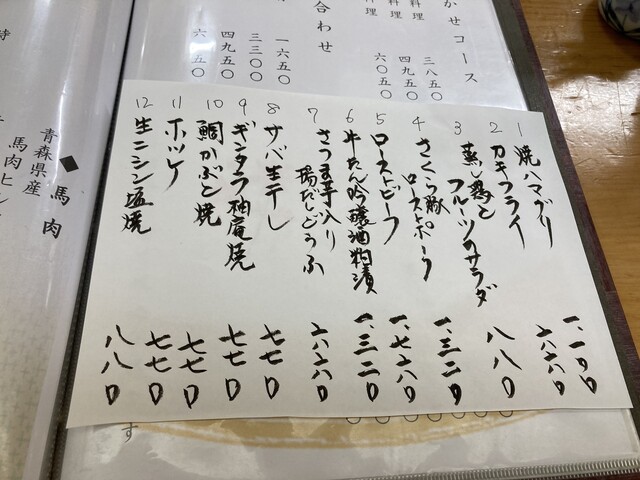 かせコース
料理 三八五〇
料理 四九五〇
料理 六〇五〇
合わせ
一六五〇
三三〇〇
四九五〇
1 焼ハマグリ 一、一〇〇
2 カキフライ 六六〇
3 蒸し鶏と
フルーツのサラダ 八八〇
4 さくら豚
ローストポーク 一、三二〇
5 ローストビーフ 一、七六〇
6 牛たん吟醸酒粕漬 一、三二〇
7 さつま芋入り
揚だしどうふ 六六〇
8 サバ生干し 七七〇
9 ギンダラ柚庵焼 七七〇
10 鯛かぶと焼 七七〇
11 ホッケ 七七〇
12 生ニシン塩焼 八八〇
す
◆馬肉
青森県産